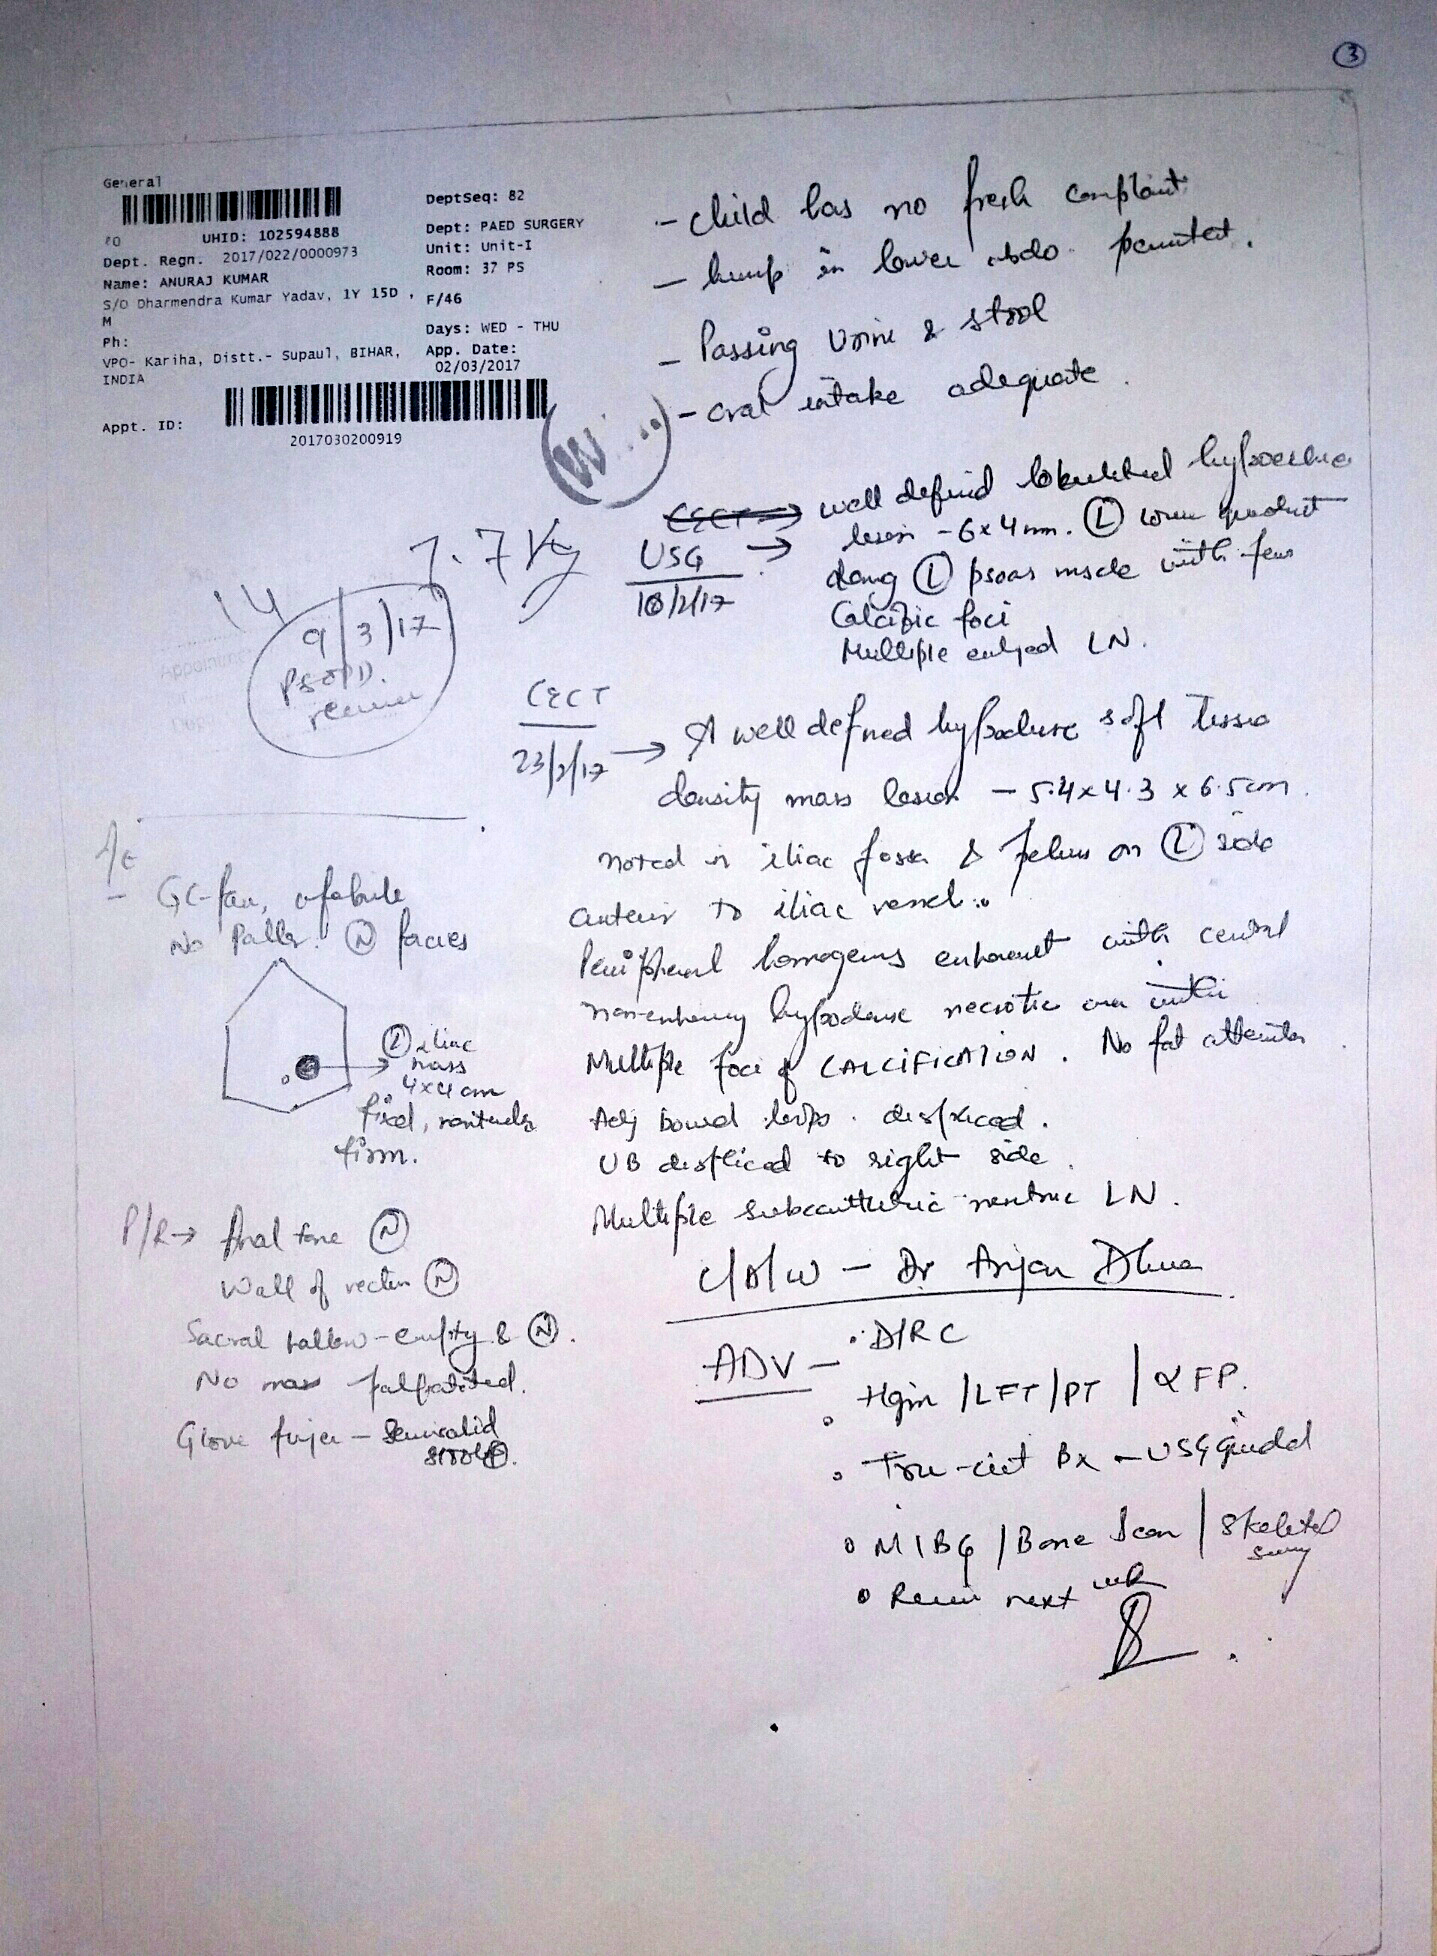 3
General
UHID: 102594888
Dept. Regn. 2017/022/0000973
Name: ANURAJ KUMAR
S/O Dharmendra Kumar Yadav, 1Y 15D ,
M
Ph:
VPO- Kariha, Distt.- Supaul, BIHAR,
INDIA
Appt. ID:
2017030200919
DeptSeq: 82
Dept: PAED SURGERY
Unit: Unit-I
Room: 37 PS
F/46
Days: WED - THU
App. Date:
02/03/2017
- child has no fresh complaint
- lump in lower abdo.
- Passing Urine & stool
- oral intake adequate.
7.7 Kg
14
9/3/17
PSOPD.
review
USG → well defined hypoechoic
lesion - 6x4mm. (L) lower quadrant
along (L) psoas muscle with few
Calcific foci
Multiple enlarged LN.
CECT
23/2/17 → A well defined hypodense soft tissue
density mass lesion - 5.4x4.3x6.5cm.
noted in iliac fossa & pelvis on (L) side
anterior to iliac vessel..
Peripheral homogenous enhancement with central
non-enhancing hypodense necrotic area with
Multiple foci of CALCIFICATION. No fat
Adj bowel loops displaced.
UB displaced to right side.
Multiple subcentimetric LN.
GC-fair, afebrile
No Pallor. (N) facies
(L) iliac
mass
4x4cm
fixed, nontender
firm.
P/R → Anal tone (N)
Wall of rectum (N)
Sacral hollow - empty & (N).
No mass palpated.
Glove finger - Semisolid
stool (+).
C/D/W - Dr Anjan Dhua
ADV - • D/RC
• Hgm /LFT/PT / αFP.
• Tru-cut Bx - USG guided
• MIBG / Bone Scan / Skeletal
survey
• Review next wk